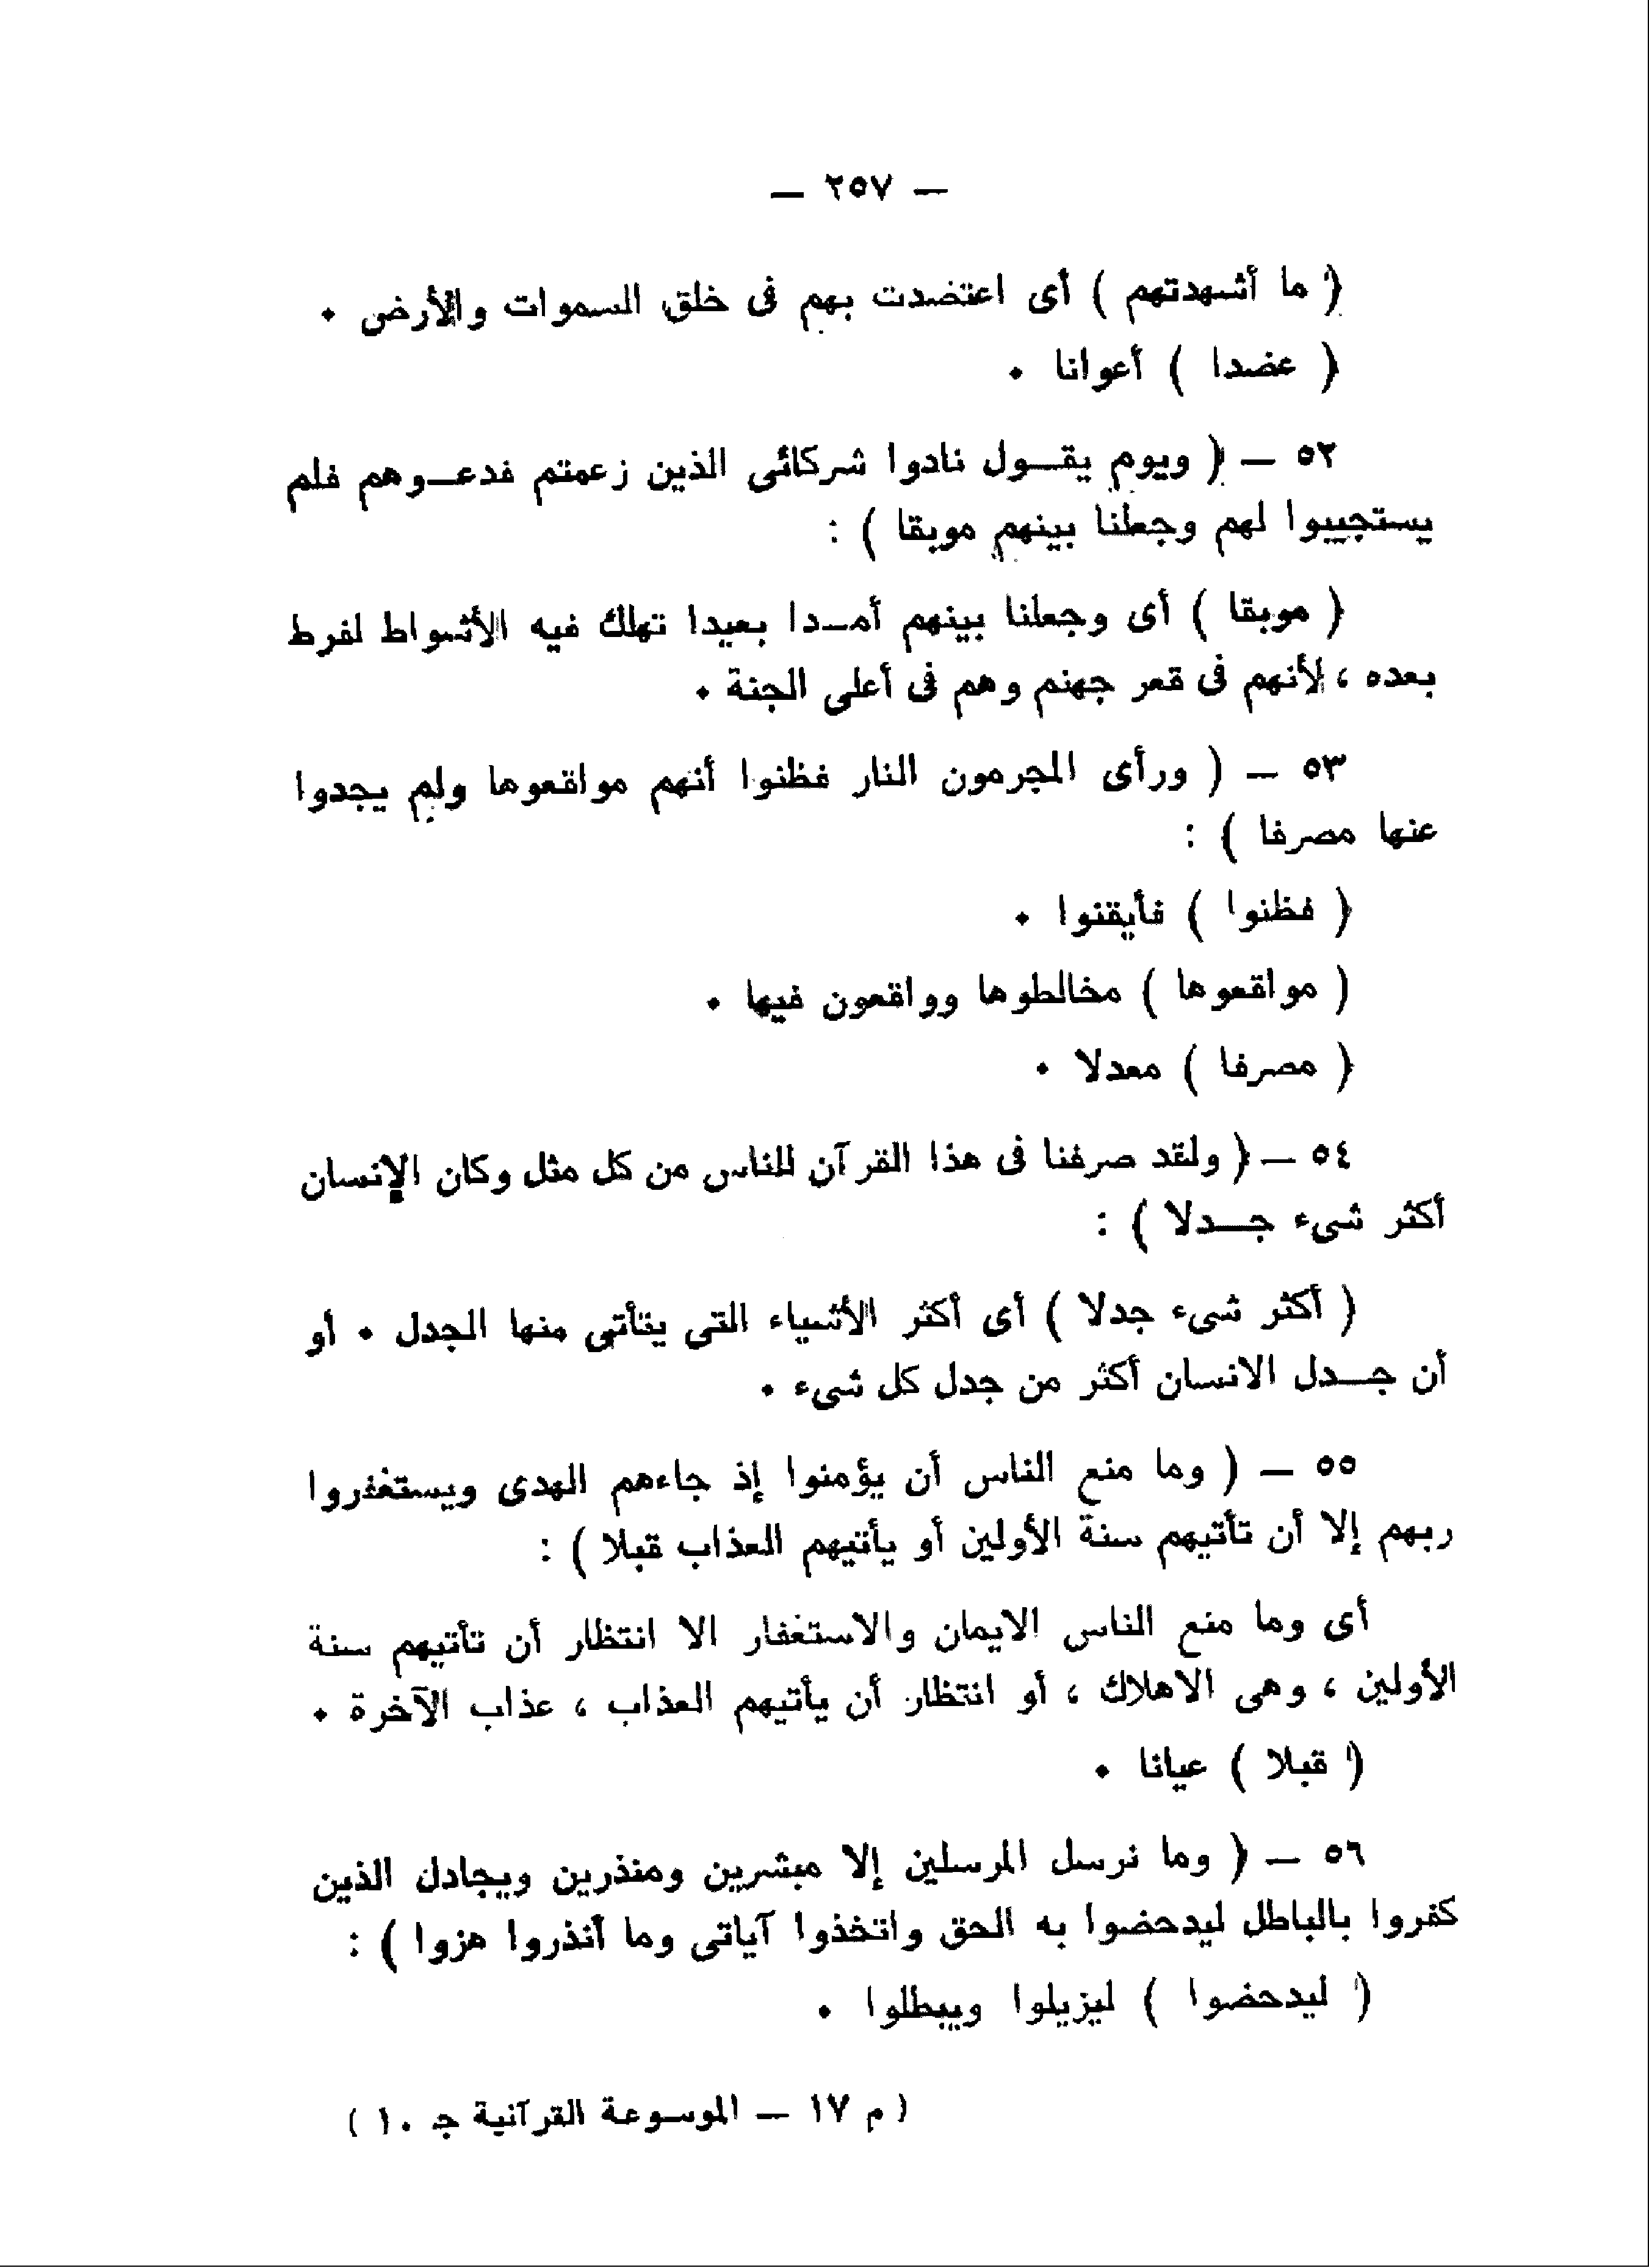 — ٢٥٧ —
( ما أشهدتهم ) أى اعتضدت بهم فى خلق السموات والأرض ٠
( عضدا ) أعوانا ٠
٥٢ — ( ويوم يقـــول نادوا شركائى الذين زعمتم فدعــوهم فلم
يستجيبوا لهم وجعلنا بينهم موبقا ) :
( موبقا ) أى وجعلنا بينهم أمــدا بعيدا تهلك فيه الأشواط لفرط
بعده ، لأنهم فى قعر جهنم وهم فى أعلى الجنة ٠
٥٣ — ( ورأى المجرمون النار فظنوا أنهم مواقعوها ولم يجدوا
عنها مصرفا ) :
( فظنوا ) فأيقنوا ٠
( مواقعوها ) مخالطوها وواقعون فيها ٠
( مصرفا ) معدلا ٠
٥٤ — ( ولقد صرفنا فى هذا القرآن للناس من كل مثل وكان الإنسان
أكثر شىء جـــدلا ) :
( أكثر شىء جدلا ) أى أكثر الأشياء التى يتأتى منها الجدل ٠ أو
أن جـــدل الانسان أكثر من جدل كل شىء ٠
٥٥ — ( وما منع الناس أن يؤمنوا إذ جاءهم الهدى ويستغفروا
ربهم إلا أن تأتيهم سنة الأولين أو يأتيهم العذاب قبلا ) :
أى وما منع الناس الايمان والاستغفار الا انتظار أن تأتيهم سنة
الأولين ، وهى الاهلاك ، أو انتظار أن يأتيهم العذاب ، عذاب الآخرة ٠
( قبلا ) عيانا ٠
٥٦ — ( وما نرسل المرسلين إلا مبشرين ومنذرين ويجادل الذين
كفروا بالباطل ليدحضوا به الحق واتخذوا آياتى وما أنذروا هزوا ) :
( ليدحضوا ) ليزيلوا ويبطلوا ٠
( م ١٧ — الموسوعة القرآنية جـ ١٠ )